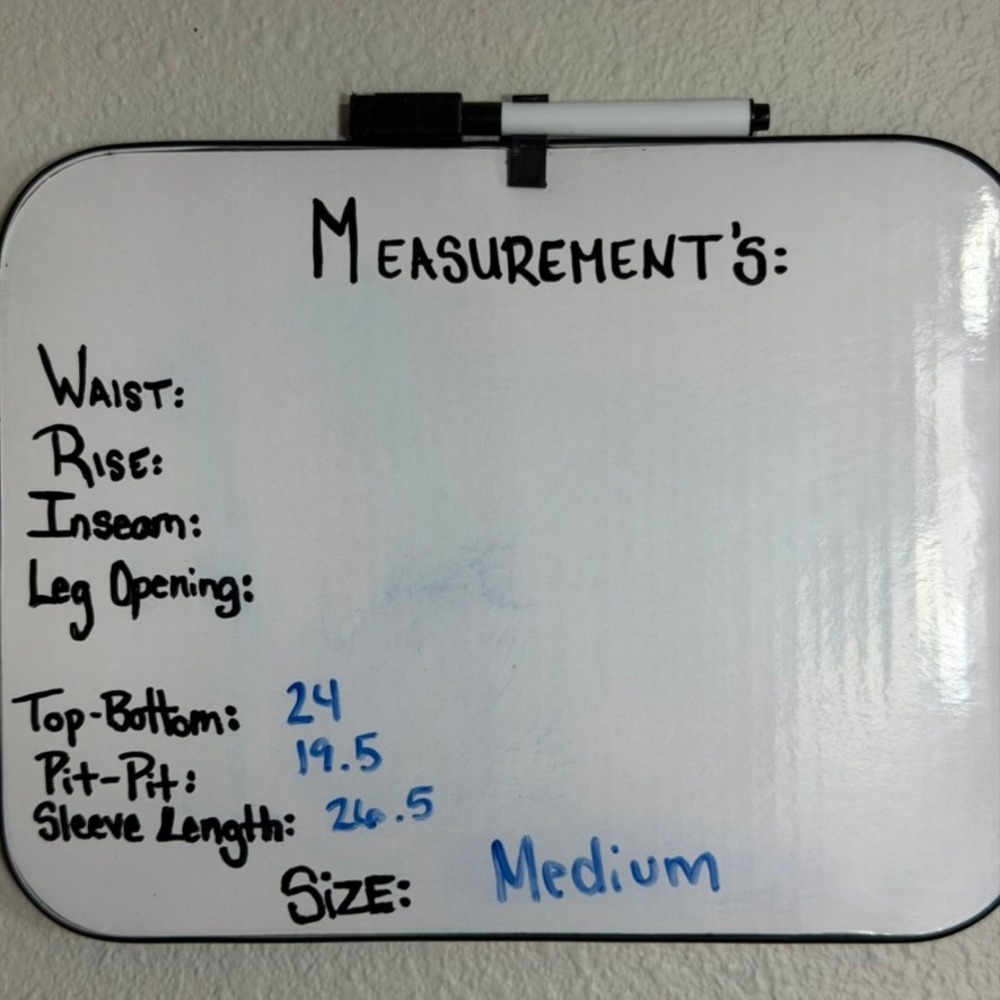 MEASUREMENT'S:
WAIST:
RISE:
Inseam:
Leg Opening:
Top-Bottom: 24
Pit-Pit: 19.5
Sleeve Length: 26.5
SiZE: Medium